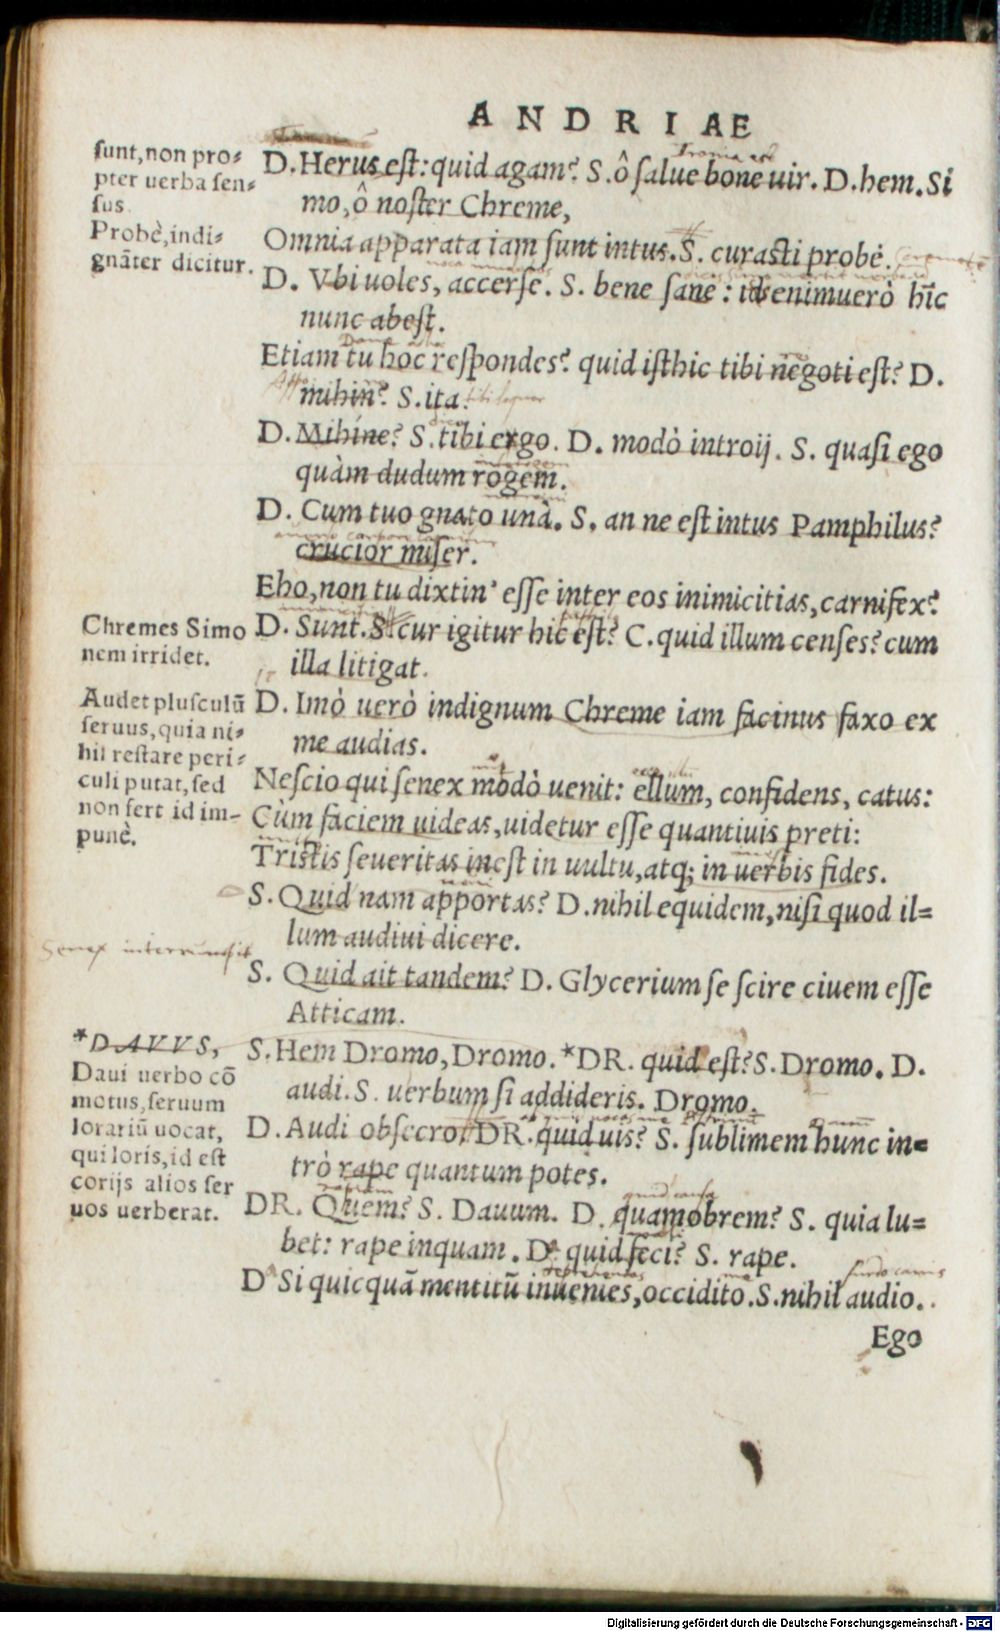 ANDRIAE
sunt, non pro=
pter uerba sen=
sus.
Probè, indi=
gnãter dicitur.
D. Herus est: quid agam? S. ô salue bone uir. D. hem. Si
mo, ô noster Chreme,
Omnia apparata iam sunt intus. S. curasti probè.
D. Vbi uoles, accerse. S. bene sanè: id enimuerò hîc
nunc abest.
Etiam tu hoc respondes? quid isthic tibi negoti est? D.
mihin? S. ita.
D. Mihíne? S. tibi ergo. D. modò introij. S. quasi ego
quàm dudum rogem.
D. Cum tuo gnato unà. S. an ne est intus Pamphilus?
crucior miser.
Eho, non tu dixtin' esse inter eos inimicitias, carnifex?
Chremes Simo
nem irridet.
D. Sunt. S. cur igitur hic est? C. quid illum censes? cum
illa litigat.
Audet plusculũ
seruus, quia ni=
hil restare peri=
culi putat, sed
non fert id im-
punè.
D. Imò uerò indignum Chreme iam facinus faxo ex
me audias.
Nescio qui senex modò uenit: ellum, confidens, catus:
Cùm faciem uideas, uidetur esse quantiuis preti:
Tristis seueritas inest in uultu, atq; in uerbis fides.
S. Quid nam apportas? D. nihil equidem, nisi quod il=
lum audiui dicere.
Senex
S. Quid ait tandem? D. Glycerium se scire ciuem esse
Atticam.
*DAVVS,
Daui uerbo cõ
motus, seruum
lorariũ uocat,
qui loris, id est
corijs alios ser
uos uerberat.
S. Hem Dromo, Dromo. *DR. quid est? S. Dromo. D.
audi. S. uerbum si addideris. Dromo.
D. Audi obsecro. DR. quid uis? S. sublimem hunc in=
trò rape quantum potes.
DR. Quem? S. Dauum. D. quamobrem? S. quia lu=
bet: rape inquam. D. quid feci? S. rape.
D Si quicquã mentitũ inuenies, occidito. S. nihil audio.
Ego
Digitalisierung gefördert durch die Deutsche Forschungsgemeinschaft - DFG